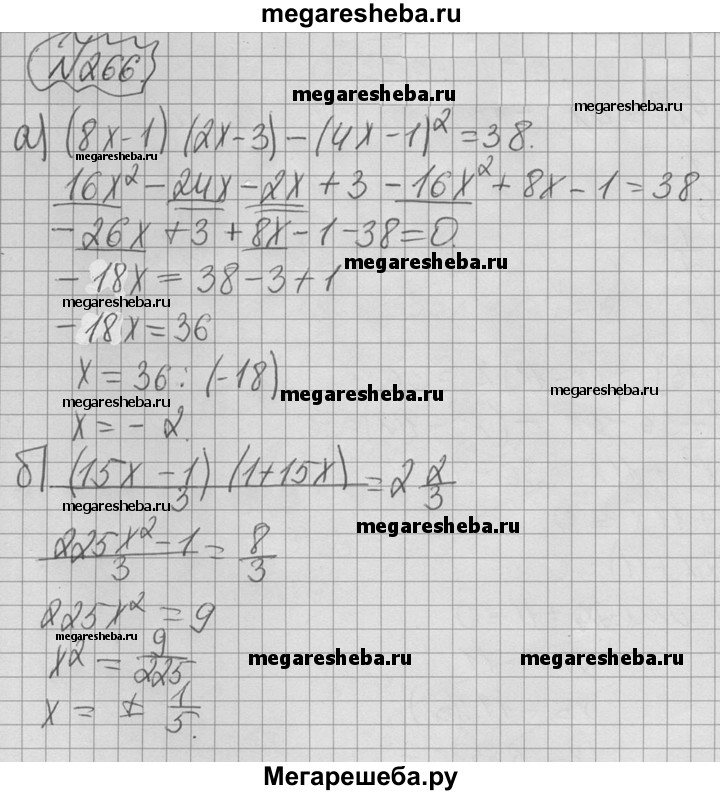 megaresheba.ru
№266.
megaresheba.ru
megaresheba.ru
а) (8x-1) (2x-3) - (4x-1)² = 38.
megaresheba.ru
16x² - 24x - 2x + 3 - 16x² + 8x - 1 = 38.
- 26x + 3 + 8x - 1 - 38 = 0.
megaresheba.ru
- 18x = 38 - 3 + 1
megaresheba.ru
- 18x = 36
x = 36 : (-18)
megaresheba.ru
megaresheba.ru
megaresheba.ru
x = - 2.
б) (15x - 1) (1 + 15x) / 3 = 2 2/3
megaresheba.ru
megaresheba.ru
225x² - 1 / 3 = 8/3
225x² = 9
megaresheba.ru
x² = 9/225
megaresheba.ru
megaresheba.ru
x = ± 1/5.
Мегарешеба.ру